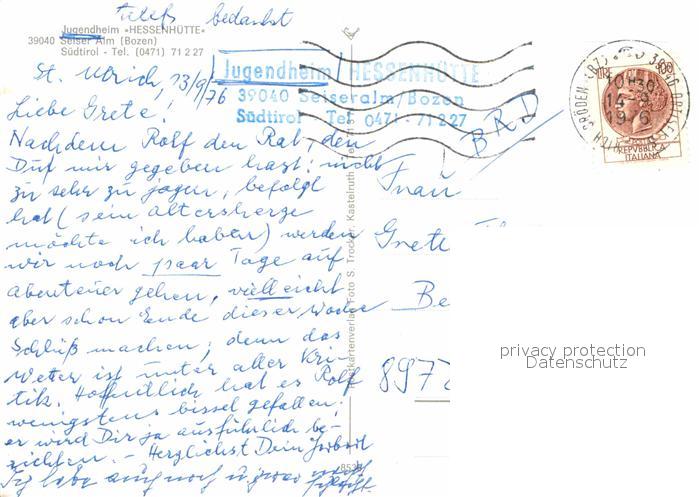 bedankt
Jugendheim »HESSENHÜTTE«
39040 Seiser Alm (Bozen)
Südtirol - Tel. (0471) 71 2 27
Jugendheim / HESSENHÜTTE
39040 Seiseralm/Bozen
Südtirol Tel 0471 - 71227
St. Ulrich, 13/9/76
Liebe Grete!
Nachdem Rolf den Rat, den
Du mir gegeben hast: nicht
zu sehr zu jagen, befolgt
hat (sein
möchte ich haben) werden
wir noch paar Tage auf
Abenteuer gehen, vielleicht
aber schon Ende dieser Woche
Schluß machen, denn das
Wetter ist unter aller Kri-
tik. Hoffentlich hat es Rolf
wenigstens bissel gefallen,
er wird Dir ja ausführlich be-
richten. - Herzlichst Dein
Ich habe auch noch
BRD
Frau
Grete
Be
897
Foto S. Trocker, Kastelruth
REPVBBLICA
ITALIANA
14-9
1976
privacy protection
Datenschutz